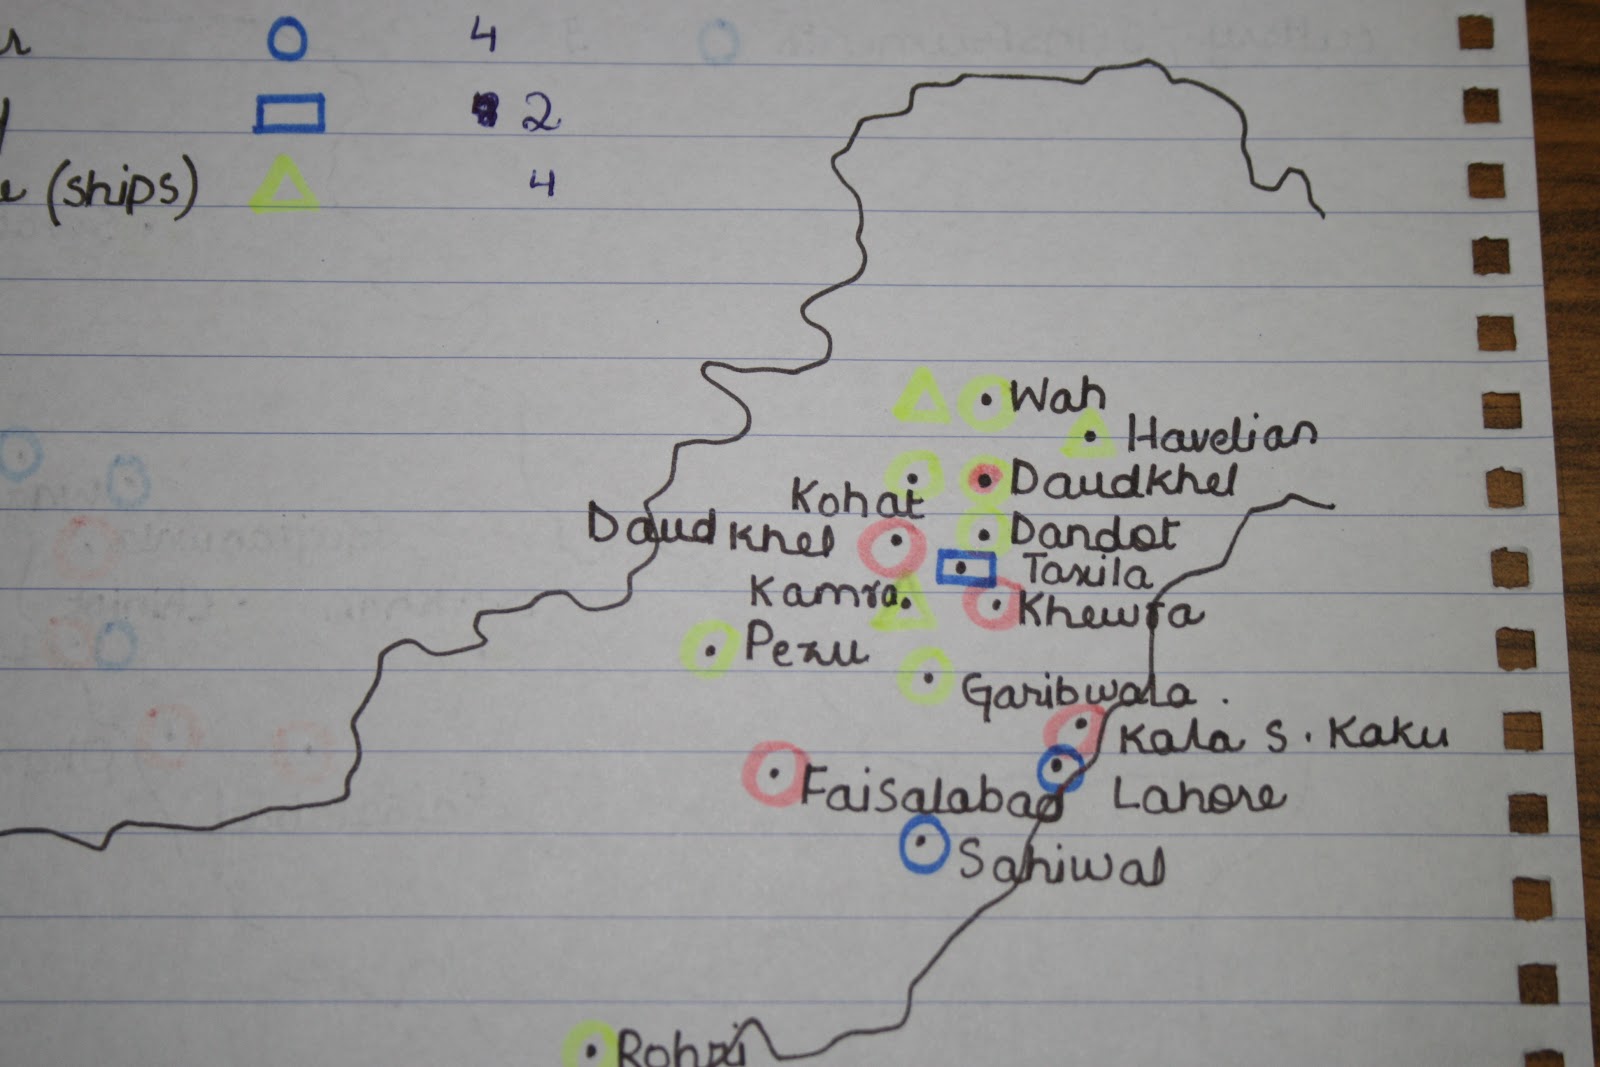 4
2
(ships) 4
Wah
Havelian
Kohat
Daudkhel
Daud khel
Dandot
Taxila
Kamra
Khewra
Pezu
Garibwala
Kala S. Kaku
Faisalabad
Lahore
Sahiwal
Rohri